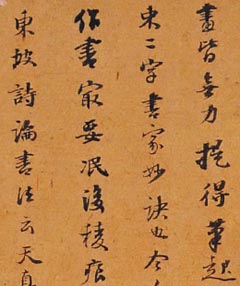 畫皆無力提得筆起
束二字書家妙訣也今人
作書最要泯沒稜痕
東坡詩論書法云天真